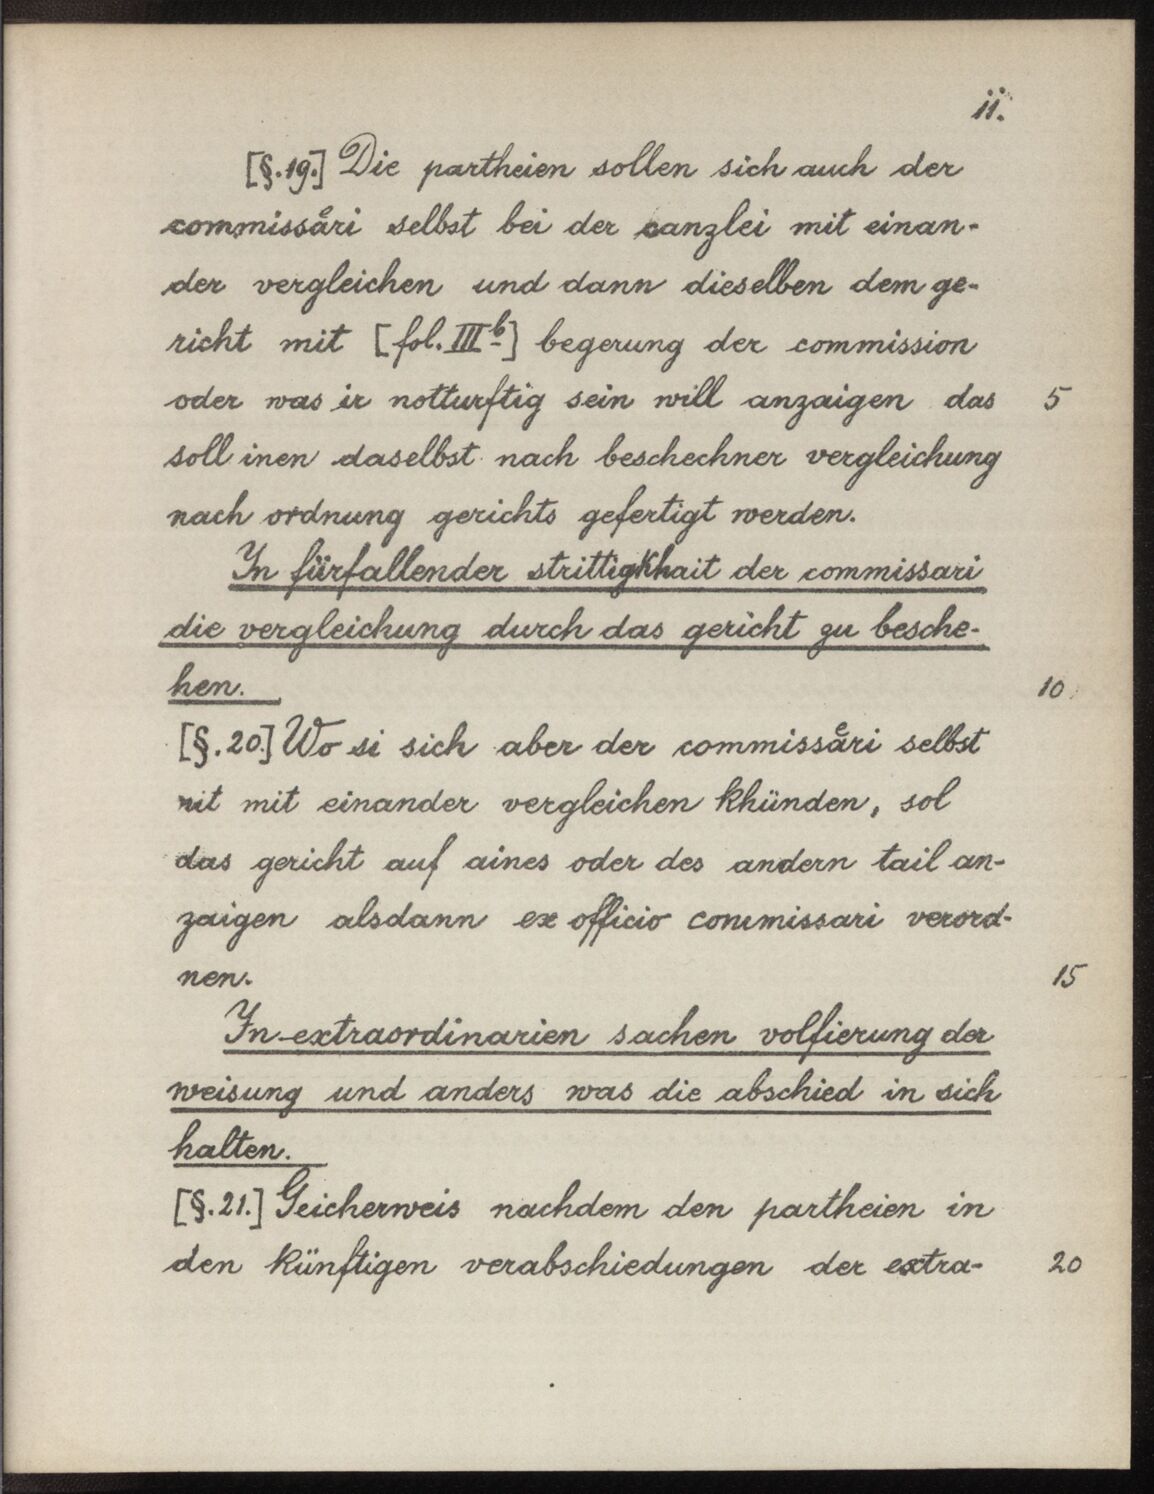 ii.
[§.19.] Die partheien sollen sich auch der
commissaͤri selbst bei der canzlei mit einan-
der vergleichen und dann dieselben dem ge-
richt mit [fol. III b] begerung der commission
oder was ir notturftig sein will anzaigen das 5
soll inen daselbst nach beschechner vergleichung
nach ordnung gerichts gefertigt werden.
In fürfallender strittigkhait der commissari
die vergleichung durch das gericht zu besche-
hen. 10
[§.20.] Wo si sich aber der commissaͤri selbst
nit mit einander vergleichen khünden, sol
das gericht auf aines oder des andern tail an-
zaigen alsdann ex officio commissari verord-
nen. 15
In extraordinarien sachen volfierung der
weisung und anders was die abschied in sich
halten.
[§.21.] Geicherweis nachdem den partheien in
den künftigen verabschiedungen der extra- 20